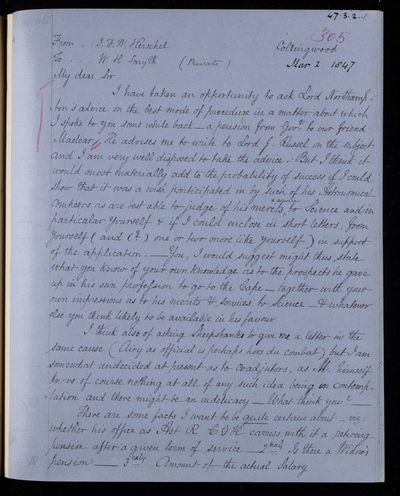 47.3.2.
305
From . . J. F. W. Herschel
Collingwood
To . . . W. H. Smyth (Private)
Mar 2 1847
My dear Sir
I have taken an opportunity to ask Lord Northamp-
ton's advice on the best mode of procedure in a matter about which
I spoke to you some while back — a pension from Govt. to our friend
Maclear. He advises me to write to Lord J. Russel on the subject
and I am very well disposed to take the advice. But I think it
would most materially add to the probability of success if I could
show that it was a wish participated in by such of his Astronomical
Compeers as are best able to judge of his merits, & to Science and in
particular Yourself & if I could enclose in short letters, from
yourself (and (2.) one or two more like yourself) in support
of the application. — You, I would suggest might thus state
what you know of your own knowledge as to the prospects he gave
up in his own profession to go to the Cape — together with your
own impressions as to his merits & services to Science — & whatever
else you think likely to be available in his favour
I think also of asking Sheepshanks to give me a letter in the
same cause (Airy as official is perhaps hors du combat) but I am
somewhat undecided at present as to Coadjutors, as M. himself
knows of course nothing at all of any such idea being in contemp-
lation and there might be an indelicacy — What think you? —
There are some facts I want to be quite certain about — viz.
whether his office as Ast R. C. G H carries with it a retiring
pension after a given term of service — 2ndly Is there a Widow's
pension — 3rdly Amount of the actual Salary